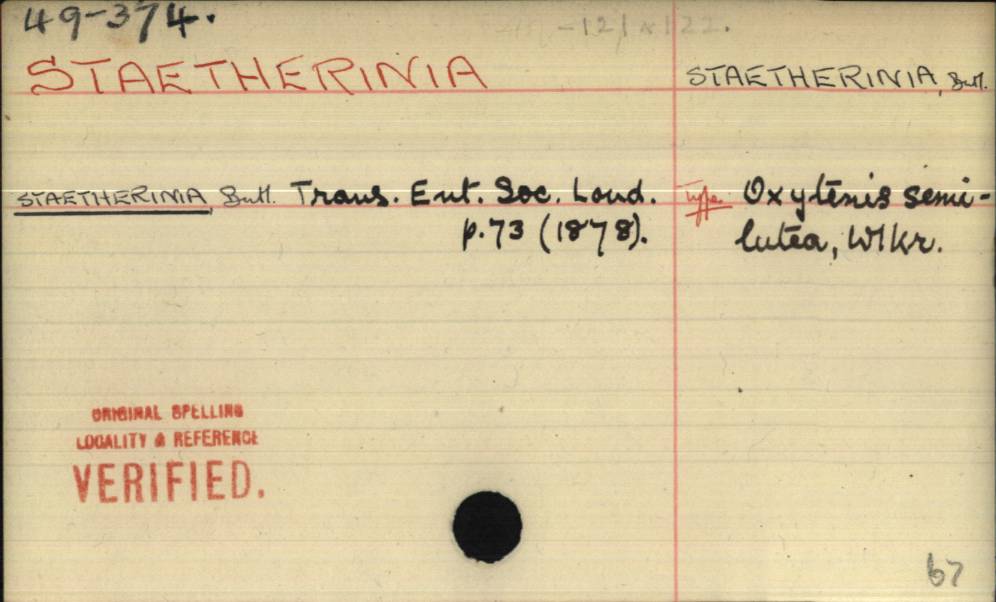 49-374.
-121 & 122.
STAETHERINIA
STAETHERINIA, Butl.
STAETHERINIA, Butl. Trans. Ent. Soc. Lond.
p.73 (1878).
Type. Oxytenis semi-
lutea, Wlkr.
ORIGINAL SPELLING
LOCALITY & REFERENCE
VERIFIED.
67